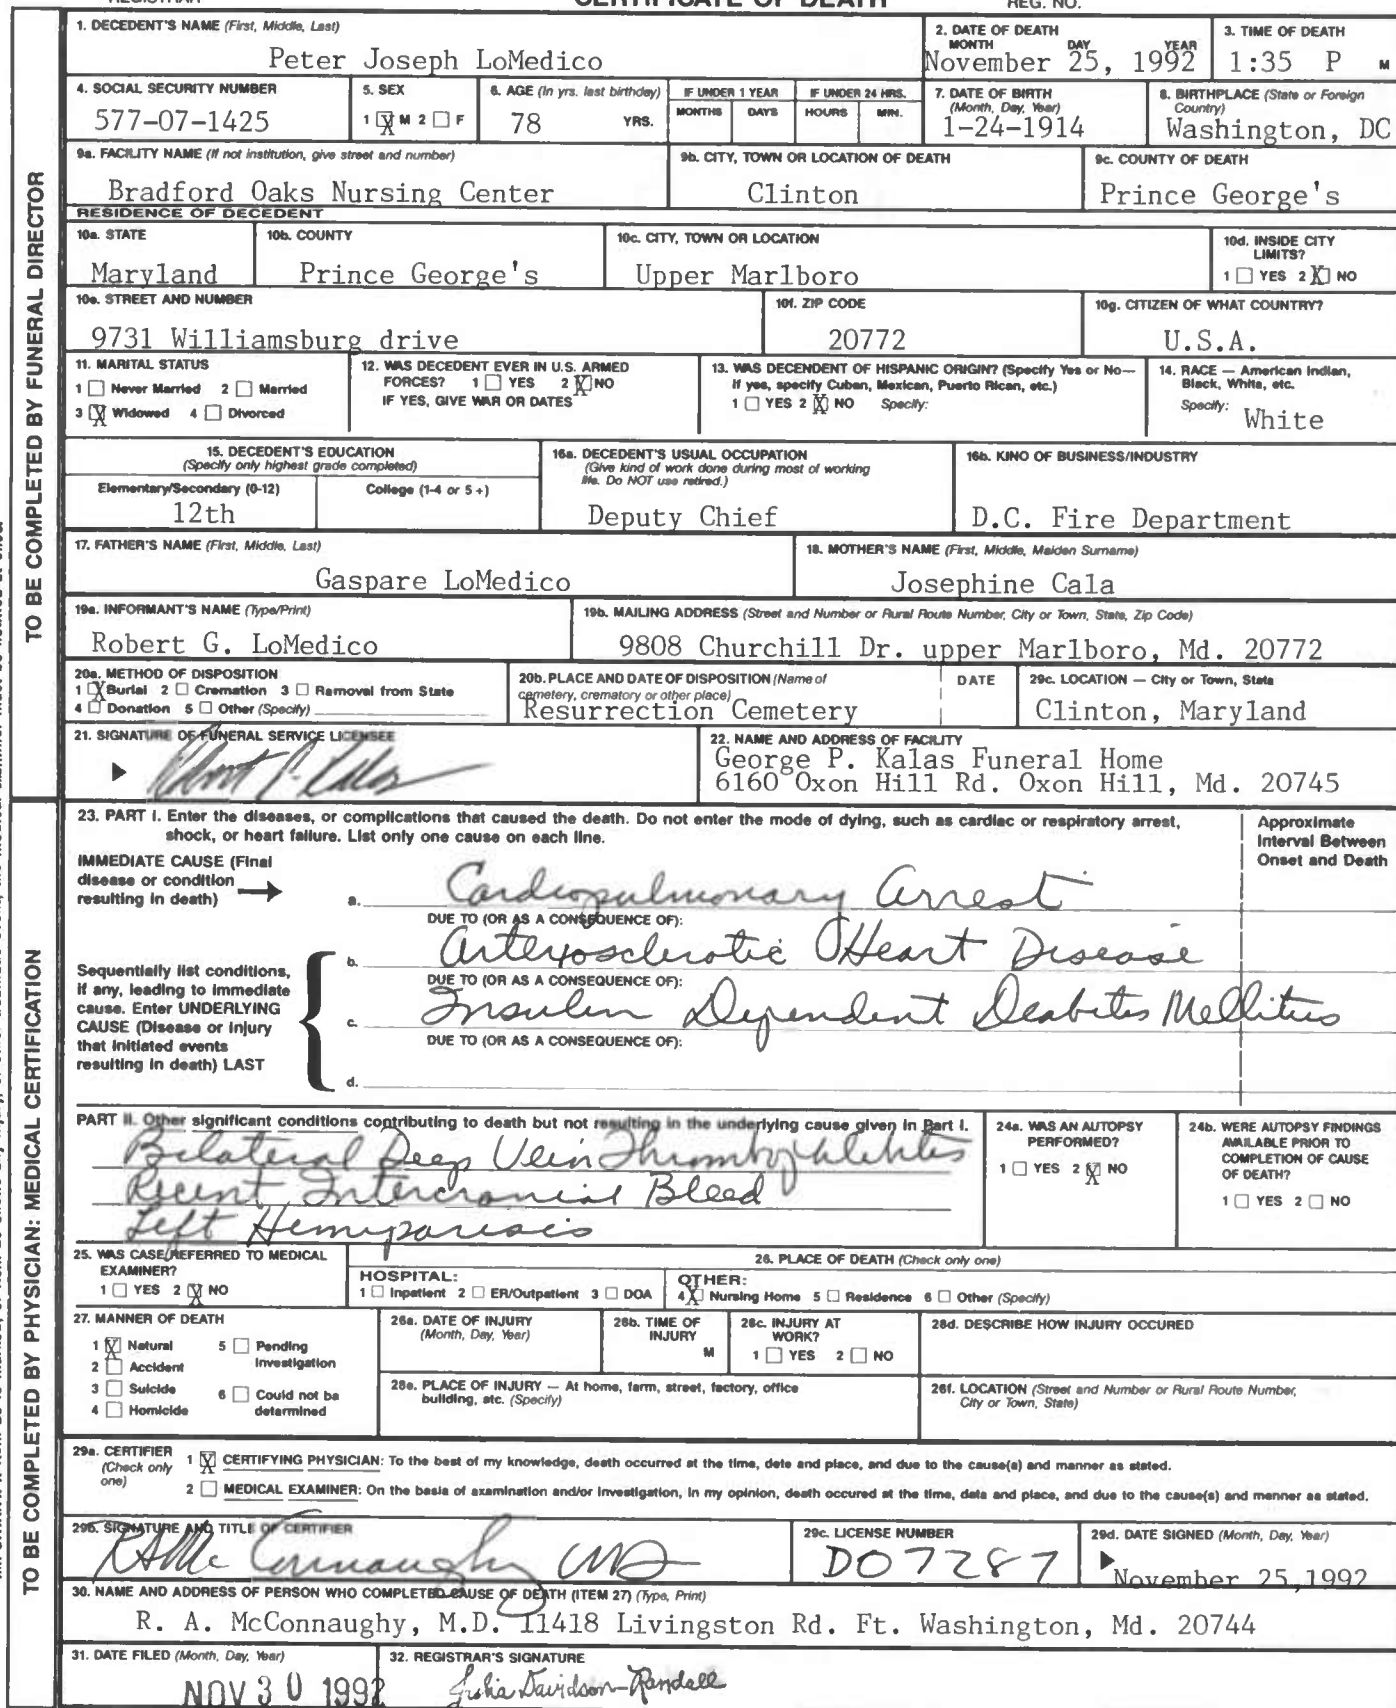 REGISTRAR CERTIFICATE OF DEATH REG. NO.
TO BE COMPLETED BY FUNERAL DIRECTOR
1. DECEDENT'S NAME (First, Middle, Last)
Peter Joseph LoMedico
2. DATE OF DEATH
MONTH DAY YEAR
November 25, 1992
3. TIME OF DEATH
1:35 P M
4. SOCIAL SECURITY NUMBER
577-07-1425
5. SEX
1 X M 2 F
6. AGE (In yrs. last birthday)
78 YRS.
IF UNDER 1 YEAR
MONTHS DAYS
IF UNDER 24 HRS.
HOURS MIN.
7. DATE OF BIRTH
(Month, Day, Year)
1-24-1914
8. BIRTHPLACE (State or Foreign
Country)
Washington, DC
9a. FACILITY NAME (If not institution, give street and number)
Bradford Oaks Nursing Center
9b. CITY, TOWN OR LOCATION OF DEATH
Clinton
9c. COUNTY OF DEATH
Prince George's
RESIDENCE OF DECEDENT
10a. STATE
Maryland
10b. COUNTY
Prince George's
10c. CITY, TOWN OR LOCATION
Upper Marlboro
10d. INSIDE CITY
LIMITS?
1 YES 2 X NO
10e. STREET AND NUMBER
9731 Williamsburg drive
10f. ZIP CODE
20772
10g. CITIZEN OF WHAT COUNTRY?
U.S.A.
11. MARITAL STATUS
1 Never Married 2 Married
3 X Widowed 4 Divorced
12. WAS DECEDENT EVER IN U.S. ARMED
FORCES? 1 YES 2 X NO
IF YES, GIVE WAR OR DATES
13. WAS DECENDENT OF HISPANIC ORIGIN? (Specify Yes or No—
If yes, specify Cuban, Mexican, Puerto Rican, etc.)
1 YES 2 X NO Specify:
14. RACE — American Indian,
Black, White, etc.
Specify: White
15. DECEDENT'S EDUCATION
(Specify only highest grade completed)
Elementary/Secondary (0-12) College (1-4 or 5+)
12th
16a. DECEDENT'S USUAL OCCUPATION
(Give kind of work done during most of working
life. Do NOT use retired.)
Deputy Chief
16b. KIND OF BUSINESS/INDUSTRY
D.C. Fire Department
17. FATHER'S NAME (First, Middle, Last)
Gaspare LoMedico
18. MOTHER'S NAME (First, Middle, Maiden Surname)
Josephine Cala
19a. INFORMANT'S NAME (Type/Print)
Robert G. LoMedico
19b. MAILING ADDRESS (Street and Number or Rural Route Number, City or Town, State, Zip Code)
9808 Churchill Dr. upper Marlboro, Md. 20772
20a. METHOD OF DISPOSITION
1 X Burial 2 Cremation 3 Removal from State
4 Donation 5 Other (Specify)
20b. PLACE AND DATE OF DISPOSITION (Name of
cemetery, crematory or other place)
Resurrection Cemetery
DATE
29c. LOCATION — City or Town, State
Clinton, Maryland
21. SIGNATURE OF FUNERAL SERVICE LICENSEE
22. NAME AND ADDRESS OF FACILITY
George P. Kalas Funeral Home
6160 Oxon Hill Rd. Oxon Hill, Md. 20745
TO BE COMPLETED BY PHYSICIAN: MEDICAL CERTIFICATION
23. PART I. Enter the diseases, or complications that caused the death. Do not enter the mode of dying, such as cardiac or respiratory arrest,
shock, or heart failure. List only one cause on each line.
Approximate
Interval Between
Onset and Death
IMMEDIATE CAUSE (Final
disease or condition
resulting in death)
a. Cardiopulmonary Arrest
DUE TO (OR AS A CONSEQUENCE OF):
b. Arteriosclerotic Heart Disease
DUE TO (OR AS A CONSEQUENCE OF):
c. Insulin Dependent Deabetes Mellitus
DUE TO (OR AS A CONSEQUENCE OF):
d.
Sequentially list conditions,
if any, leading to immediate
cause. Enter UNDERLYING
CAUSE (Disease or injury
that initiated events
resulting in death) LAST
PART II. Other significant conditions contributing to death but not resulting in the underlying cause given in Part I.
Bilateral Deep Vein Thrombophlebitis
Recent Intercranial Bleed
Left Hemiparesis
24a. WAS AN AUTOPSY
PERFORMED?
1 YES 2 X NO
24b. WERE AUTOPSY FINDINGS
AVAILABLE PRIOR TO
COMPLETION OF CAUSE
OF DEATH?
1 YES 2 NO
25. WAS CASE REFERRED TO MEDICAL
EXAMINER?
1 YES 2 X NO
26. PLACE OF DEATH (Check only one)
HOSPITAL:
1 Inpatient 2 ER/Outpatient 3 DOA
OTHER:
4 X Nursing Home 5 Residence 6 Other (Specify)
27. MANNER OF DEATH
1 X Natural 5 Pending
2 Accident Investigation
3 Suicide 6 Could not be
4 Homicide determined
28a. DATE OF INJURY
(Month, Day, Year)
28b. TIME OF
INJURY
M
28c. INJURY AT
WORK?
1 YES 2 NO
28d. DESCRIBE HOW INJURY OCCURED
28e. PLACE OF INJURY — At home, farm, street, factory, office
building, etc. (Specify)
28f. LOCATION (Street and Number or Rural Route Number,
City or Town, State)
29a. CERTIFIER
(Check only
one)
1 X CERTIFYING PHYSICIAN: To the best of my knowledge, death occurred at the time, date and place, and due to the cause(s) and manner as stated.
2 MEDICAL EXAMINER: On the basis of examination and/or investigation, in my opinion, death occured at the time, date and place, and due to the cause(s) and manner as stated.
29b. SIGNATURE AND TITLE OF CERTIFIER
RAMcConnaughy MD
29c. LICENSE NUMBER
D07287
29d. DATE SIGNED (Month, Day, Year)
November 25,1992
30. NAME AND ADDRESS OF PERSON WHO COMPLETED CAUSE OF DEATH (ITEM 27) (Type, Print)
R. A. McConnaughy, M.D. 11418 Livingston Rd. Ft. Washington, Md. 20744
31. DATE FILED (Month, Day, Year)
NOV 30 1992
32. REGISTRAR'S SIGNATURE
Julia Davidson-Randall